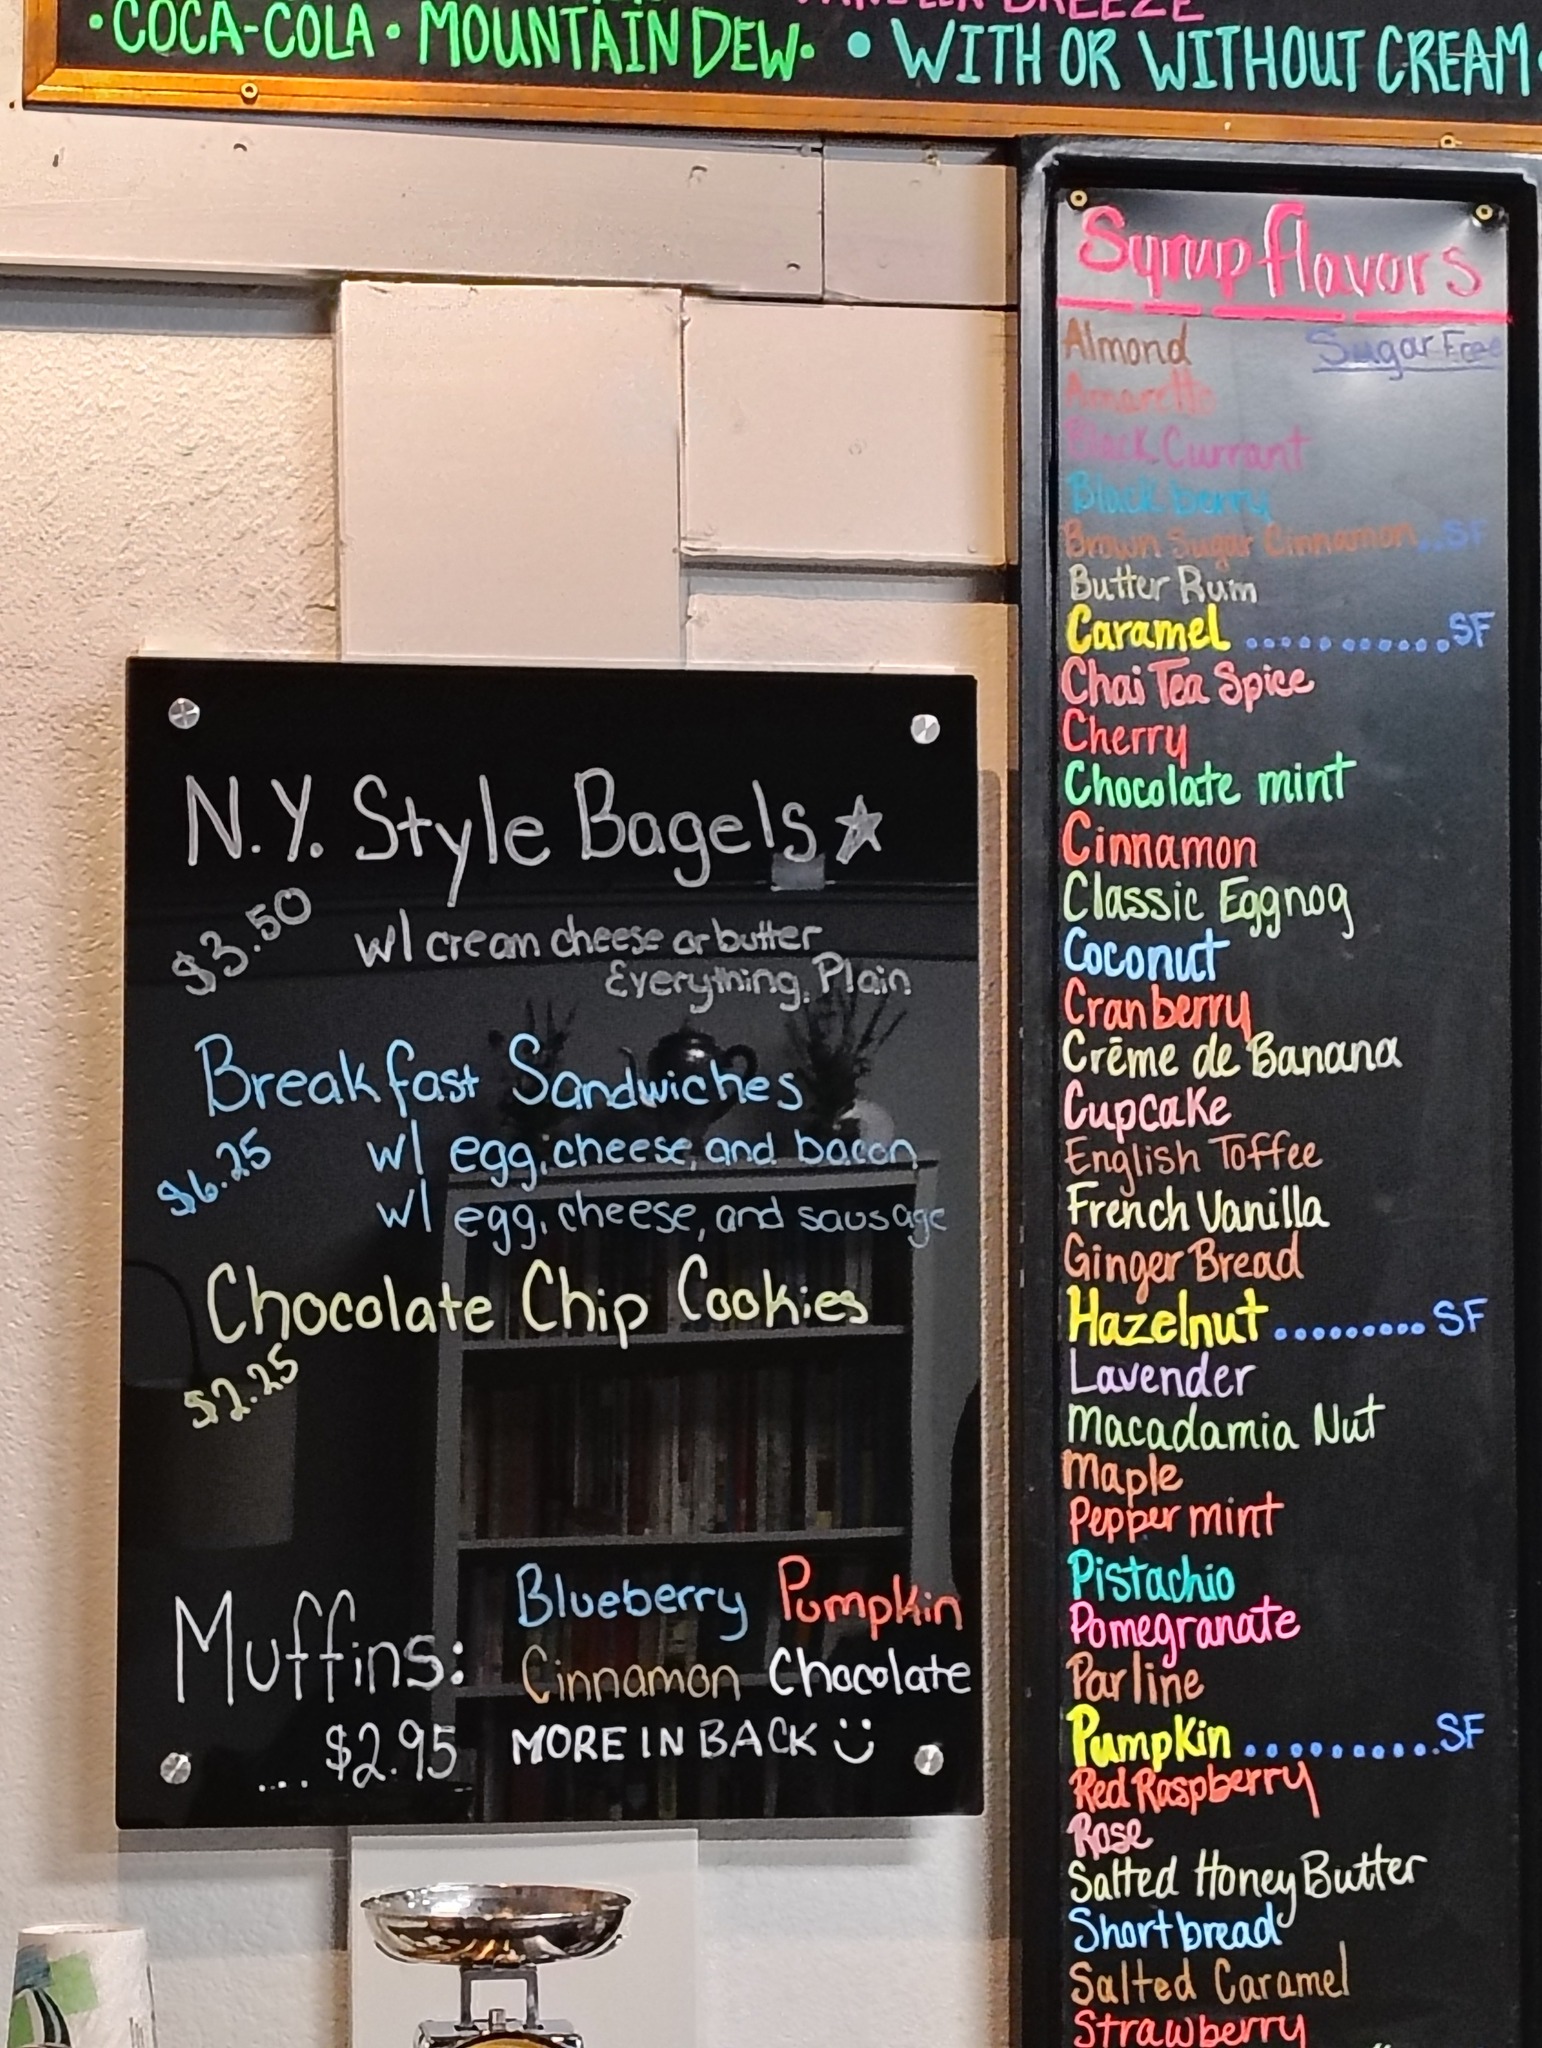 • COCA-COLA • MOUNTAIN DEW •
BREEZE
• WITH OR WITHOUT CREAM •
N.Y. Style Bagels
$3.50 w/ cream cheese or butter
Everything, Plain
Breakfast Sandwiches
$6.25 w/ egg, cheese, and bacon
w/ egg, cheese, and sausage
Chocolate Chip Cookies
$2.25
Muffins: Blueberry Pumpkin
Cinnamon Chocolate
.... $2.95 MORE IN BACK
Syrup flavors
Almond Sugar Free
Amaretto
Black Currant
Black berry
Brown Sugar Cinnamon..SF
Butter Rum
Caramel ............SF
Chai Tea Spice
Cherry
Chocolate mint
Cinnamon
Classic Eggnog
Coconut
Cranberry
Crēme de Banana
Cupcake
English Toffee
French Vanilla
Ginger Bread
Hazelnut ......... SF
Lavender
Macadamia Nut
Maple
Pepper mint
Pistachio
Pomegranate
Parline
Pumpkin ..........SF
Red Raspberry
Rose
Salted Honey Butter
Shortbread
Salted Caramel
Strawberry